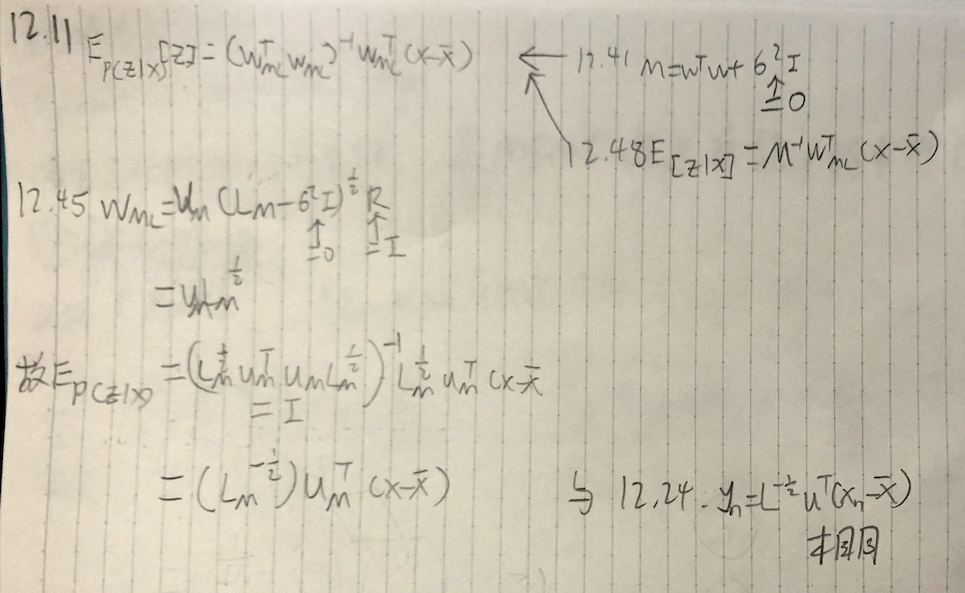 12.11 E_{p(z|x)}[z] = (W_{ML}^T W_{ML})^{-1} W_{ML}^T (x-x̄) ← 12.41 M=W^TW+σ^2I
↑=0
12.48 E[z|x] = M^{-1}W_{ML}^T (x-x̄)
12.45 W_{ML}=U_M (L_M-σ^2I)^{1/2} R
↑=0 ↑=I
= U_M L_M^{1/2}
故E_{p(z|x)} = (L_M^{1/2} U_M^T U_M L_M^{1/2})^{-1} L_M^{1/2} U_M^T (x-x̄
= I
= (L_M^{-1/2}) U_M^T (x-x̄) ㄣ 12.24. y_n=L^{-1/2} U^T(x_n-x̄)
相同